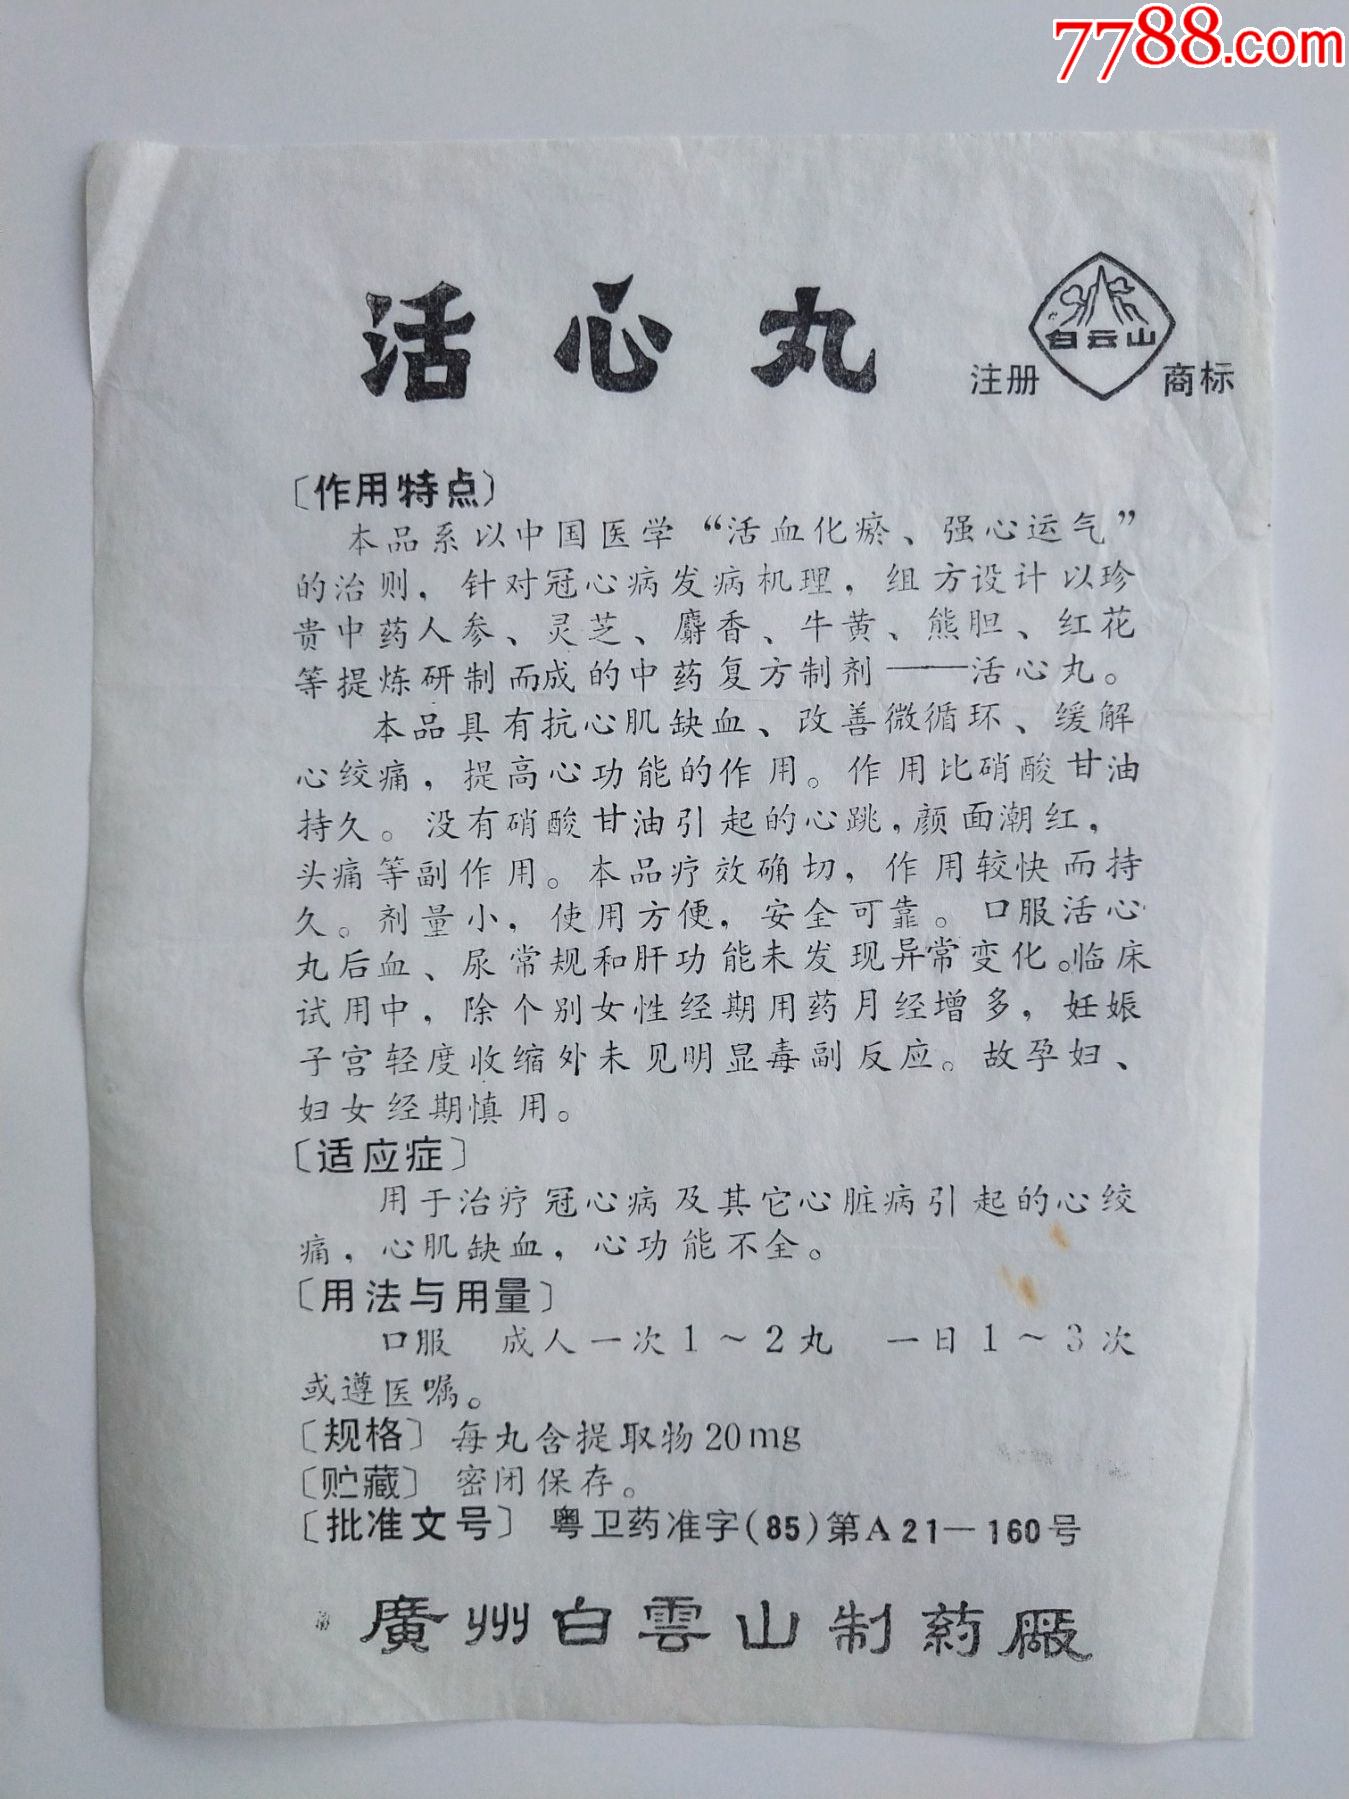 7788.com
活心丸
白云山
注册 商标
〔作用特点〕
本品系以中国医学“活血化瘀、强心运气”
的治则，针对冠心病发病机理，组方设计以珍
贵中药人参、灵芝、麝香、牛黄、熊胆、红花
等提炼研制而成的中药复方制剂——活心丸。
本品具有抗心肌缺血、改善微循环、缓解
心绞痛，提高心功能的作用。作用比硝酸甘油
持久。没有硝酸甘油引起的心跳，颜面潮红，
头痛等副作用。本品疗效确切，作用较快而持
久。剂量小，使用方便，安全可靠。口服活心
丸后血、尿常规和肝功能未发现异常变化。临床
试用中，除个别女性经期用药月经增多，妊娠
子宫轻度收缩外未见明显毒副反应。故孕妇、
妇女经期慎用。
〔适应症〕
用于治疗冠心病及其它心脏病引起的心绞
痛，心肌缺血，心功能不全。
〔用法与用量〕
口服 成人一次1～2丸 一日1～3次
或遵医嘱。
〔规格〕每丸含提取物20mg
〔贮藏〕密闭保存。
〔批准文号〕粤卫药准字(85)第A21—160号
廣州白雲山制药厰